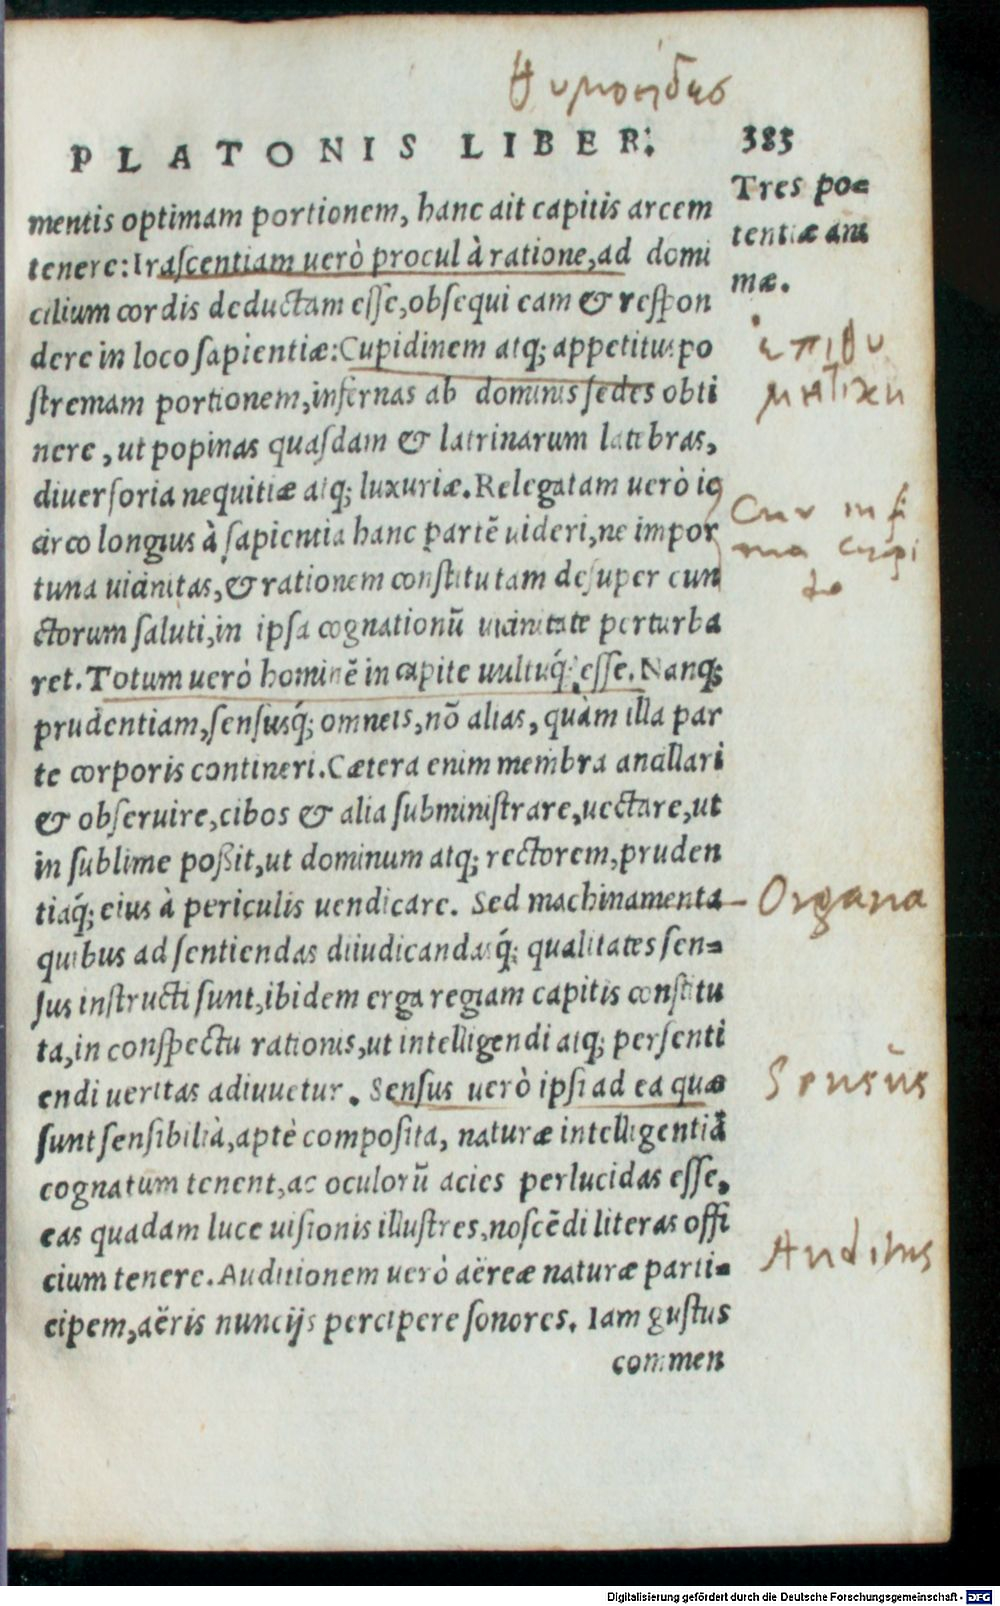 θυμοειδης
PLATONIS LIBER. 383
Tres po=
tentiæ ani
mæ.
mentis optimam portionem, hanc ait capitis arcem
tenere: Irascentiam uerò procul à ratione, ad domi
cilium cordis deductam esse, obsequi eam & respon
dere in loco sapientiæ: Cupidinem atq; appetitus po
stremam portionem, infernas ab dominis sedes obti
nere, ut popinas quasdam & latrinarum latebras,
diuersoria nequitiæ atq; luxuriæ. Relegatam uerò id
circo longius à sapientia hanc partẽ uideri, ne impor
tuna uicinitas, & rationem constitutam desuper cun
ctorum saluti, in ipsa cognationũ uicinitate perturba
ret. Totum uerò hominẽ in capite uultuq́; esse. Nanq;
prudentiam, sensusq́; omneis, nõ alias, quàm illa par
te corporis contineri. Cætera enim membra ancillari
& obseruire, cibos & alia subministrare, uectare, ut
in sublime poßit, ut dominum atq; rectorem, pruden
tiaq́; eius à periculis uendicare. Sed machinamenta
quibus ad sentiendas diiudicandasq́; qualitates sen=
sus instructi sunt, ibidem erga regiam capitis constitu
ta, in conspectu rationis, ut intelligendi atq; persenti
endi ueritas adiuuetur. Sensus uerò ipsi ad ea quæ
sunt sensibilia, aptè composita, naturæ intelligentiã
cognatum tenent, ac oculorũ acies perlucidas esse,
eas quadam luce uisionis illustres, noscẽdi literas offi
cium tenere. Auditionem uerò aëreæ naturæ parti=
cipem, aëris nuncijs percipere sonores. Iam gustus
commen
ἐπιθυ
μητικη
Cur infi
ma cupi
do
Organa
Sensus
Auditus
Digitalisierung gefördert durch die Deutsche Forschungsgemeinschaft - DFG